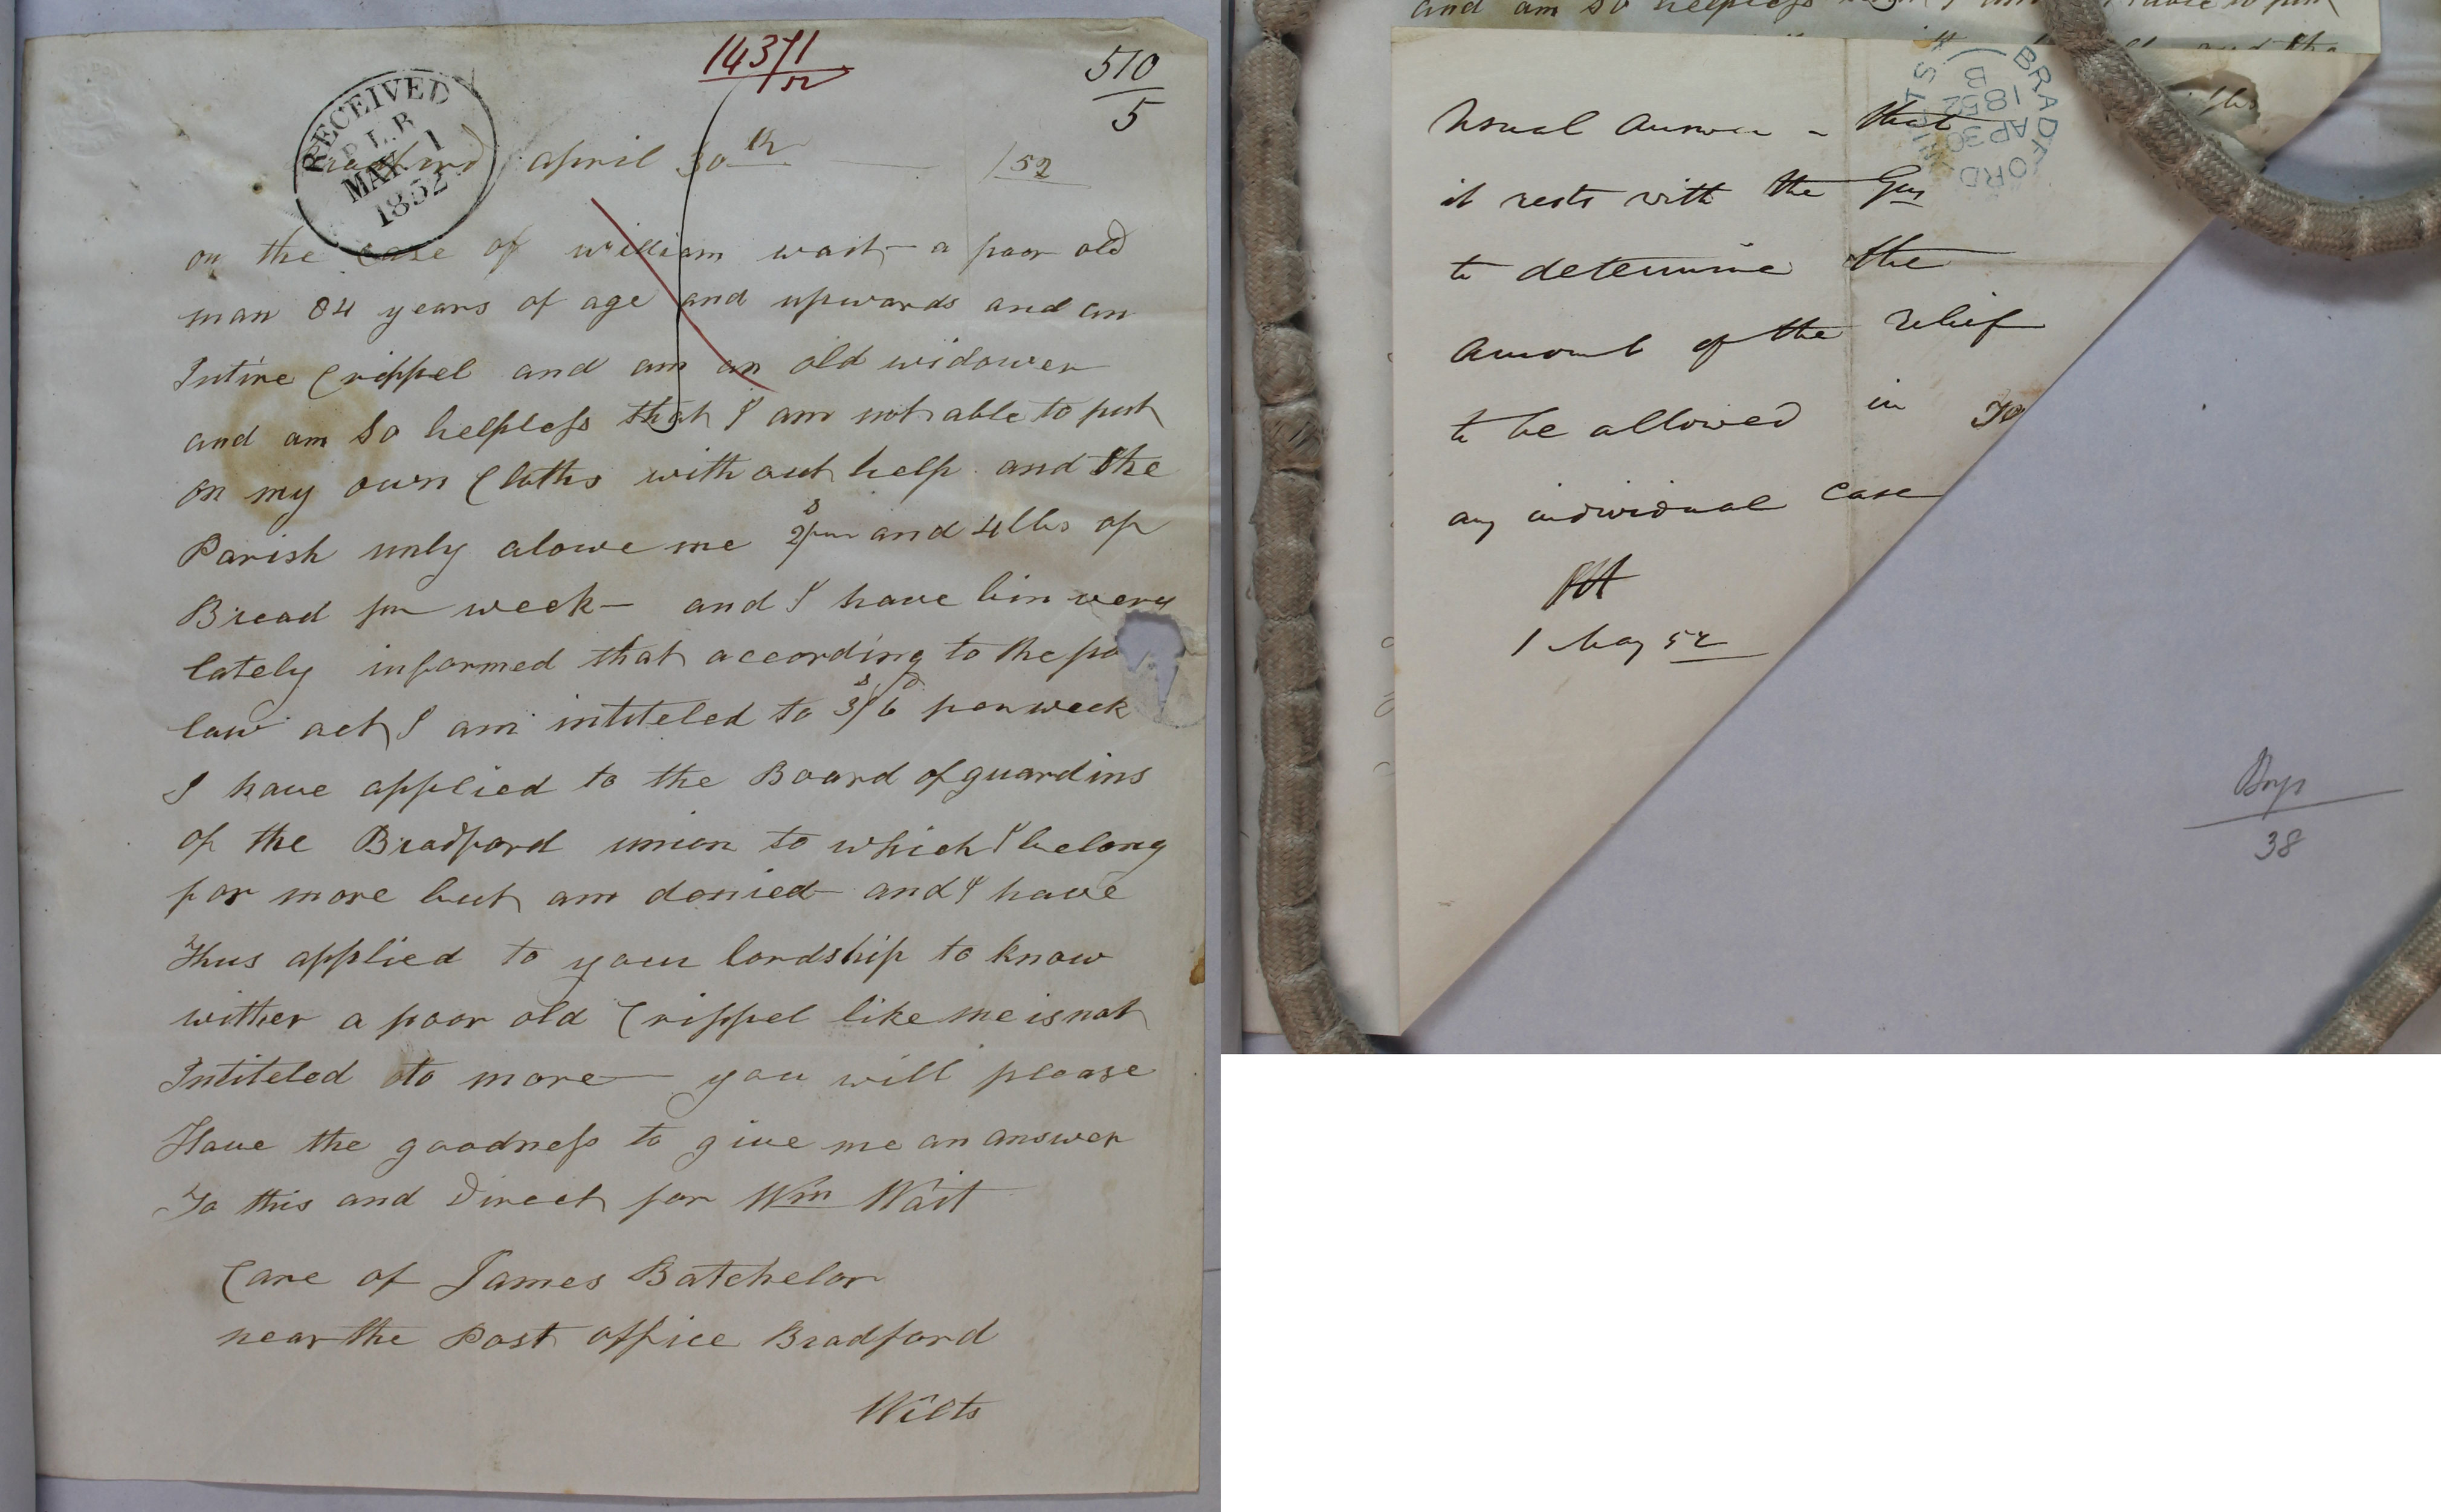 14371/52
510/5
RECEIVED
P.L.B
MAY 1
1852
Bradford april 30th /52
on the case of william wait a poor old
man 84 years of age and upwards and an
Intire Crippel and am an old widower
and am So helpless that I am not able to put
on my own Cloths without help and the
Parish only alowe me 2s per and 4 lbs of
Bread per week - and I have bin very
lately informed that according to the po
law act I am intiteled to 3s/6d per week
I have applied to the Board of guardins
of the Bradford union to which I belong
for more but am denied - and I have
Thus applied to your lordship to know
wither a poor old Crippel like me is not
Intiteled to more - you will please
Have the goodness to give me an answer
To this and Direct for Wm Wait
Care of James Batchelor
near the Post office Bradford
Wilts
and am So helpless
BRADFORD
AP 30
1852
B
WILTS
Usual Answer - that
it rests with the Gns
to determine the
Amount of the relief
to be allowed in
any individual case
1 May 52
To
38